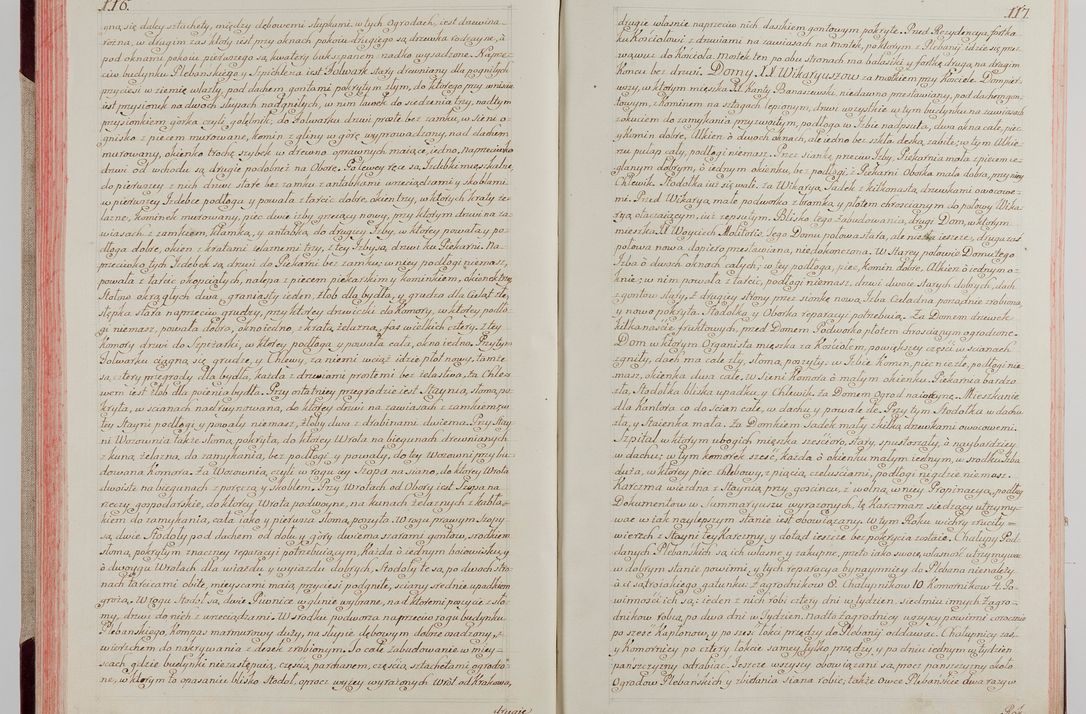 116.
gną się daley sztachety, między dębowemi słupkami, w tych Ogrodach, iest drzewina
rożna, w drugim zas ktory iest przy oknach pokoiu drugiego są drzewka rodzayne, a
pod oknami pokoiu pierwszego są kwatery bukszpanem rzadko wysadzone. Naprze-
ciw budynku Plebanskiego y Spichlerza iest Folwark stary drewniany dla pognitych
przyciesi w ziemię wlazły, pod dachem gontami pokrytym złym, do ktorego przy
iest przysionek na dwoch słupach nadgniłych, w nim ławek do siedzenia trzy, nad tym
przysionkiem gorka czyli gołębnik; do Folwarku drzwi proste bez zamku, w sieni o-
gnisko z piecem murowane, komin z gliny w gorę wyprowadzony, nad dachem
murowany, okienko trochę szybek w drzewno oprawnych maiące iedno, naprzeciwko
drzwi od wchodu są drugie podobneż na Oborę. Po lewey ręce są Izdebki mieszkalne,
do pierwszey z nich drzwi stare bez zamku z antabkami wrzeciądzami y skoblami
w pierwszey Izdebce podłoga y powała z tarcic dobre, okien trzy, w ktorych kraty że-
lazne, kominek murowany, piec dwie izby grzeiący nowy, przy ktorym drzwi na za-
wiasach z zamkiem, klamką, y antabą do drugiey Izby, w ktorey powała y po-
dłoga dobre, okien z kratami żelaznemi trzy, z tey Izby są drzwi ku Piekarni. Na-
przeciwko tych Izdebek są drzwi do Piekarni bez zamku, w niey podłogi niemasz,
powała z tarcic okopciałych, nalepa z piecem piekarskim y kominkiem, okienek trzy,
Stołow okrągłych dwa, graniasty ieden, żłob dla bydła, y grudza dla Cieląt złe,
slepka stara naprzeciw grudzy, przy ktorey drzwiczki do Komory, w ktorey podło-
gi niemasz, powała dobra, okno iedno, z kratą żelazną, fas wielkich cztery. Z tey
Komory drzwi do Spiżarki, w ktorey podłoga y powała całe, okno iedno. Przy tym
Folwarku ciągną się grudze, y Chlewy, za niemi wciąż idzie płot nowy, tamże
są cztery przegrody dla bydła, każda z drzwiami prostemi bez żelastwa, za Chle-
wem iest żłob dla poienia bydła. Przy ostatniey przegrodzie iest Staynia, słomą po-
kryta, w scianach nadruynowana, do ktorey drzwi na zawiasach z zamkiem, w
tey Stayni podłogi y powały niemasz, żłoby dwa z drabinami dwiema. Przy Stay-
ni Wozownia także słomą pokryta, do ktorey Wrota na biegunach drewnianych
z kuną żelazną do zamykania, bez podłogi y powały, do tey Wozowni przybu-
dowana Komora. Za Wozownią czyli w rogu iey Szopa na siano, do ktorey Wrota
dwoiste na biegunach z poręczą y skoblem. Przy Wrotach od Obory iest Szopa na
rzeczy gospodarskie, do ktorey Wrota podwoyne, na kunach żelaznych z kabłą-
kiem do zamykania, cała iako y pierwsza słomą poszyta. W rogu prawym Szopy
są dwie Stodoły pod dachem od dołu y gory dwiema szarami gontow, szrodkiem
słomą pokrytym znaczney reparacyi potrzebuiącym, Każda o iednym boiowisku, y
o dwoygu Wrotach dla wiazdu y wyiazdu dobrych. Stodoły te są, po dwoch stro-
nach tarcicami obite, mieyscami maią przyciesi podgniłe, sciany srednie upadkiem
grożą. W rogu Stodoł są, dwie Piwnice w glinie wybrane, nad ktoremi poszycie z sło-
my, drzwi do nich z wrzeciądzami. W srodku podworza naprzeciw rogu budynku
Plebanskiego, kompas marmurowy duży, na słupie dębowym dobrze osadzony, z
wierzchem do nakrywania z desek zrobionym. To całe zabudowanie w miey-
scach, gdzie budynki niezastępuią, częscią parchanem, częscią sztachetami ogrodzo-
ne, w ktorym to opasaniu blisko Stodoł, oprocz wyżey wyrażonych Wrot od Krakowa,
drugie
117.
drugie własnie naprzeciw nich daszkiem gontowym pokryte. Przed Rezydencyą, fortka
ku Kościołowi z drzwiami na zawiasach na mostek, po ktorym z Plebanij idzie się prze-
wawoz do Kościoła. Mostek ten po obu stronach ma balaski y fortkę drugą na drugim
Koncu bez drzwi. Domy XX Wikaryuszow za mostkiem przy Kosciele. Dom pier-
wszy, w ktorym mieszka X. Kanty Banaszewski, niedawno przestawiany, pod dachem gon-
towym, z Kominem na sztagach lepionym, drzwi wszystkie w tym budynku na zawiasach
z okuciem do zamykania przyzwoitym, podłoga w Izbie nadpsuta, dwa okna całe, piec
y Komin dobre, Alkierz o dwoch oknach, ale iedno bez szkła deską zabite; w tym Alkie-
rzu pułap cały podłogi niemasz. Przez sionkę przeciw Izby, Piekarnia mała z piecem ce-
glanym dobrym, o iednym okienku, bez podłogi: z Piekarni Oborka mała dobra, przy niey
Chlewik. Stodołka iuż się wali. za Wikaryą Sadek z kilkonastą, drzewkami owocowe-
mi. Przed Wikaryą małe podworko z bromką y płotem chrościanym do połowy Wika-
ryą otaczaiącym, iuż zepsutym. Blisko tego zabudowania, drugi Dom, w ktorym
mieszka X Woyciech Molitoris. Tego Domu połowa stara, ale niezła ieszcze, druga zas
połowa nowa, dopiero przestawiona, niedokonczona. W Starey połowie Domu tego
Izba o dwoch oknach całych, w tey podłoga, piec, komin dobre. Alkierz o iednym o-
knie; w nim powała z tarcic, podłogi niemasz, drzwi dwoie starych dobrych, dach
z gontow stary. Z drugiey strony przez sionkę nowa Izba Czeladna porządnie zrobiona
y nowo pokryta. Stodołka y Oborka reparacyi potrzebuią. Za Domem drzewek
kilkanascie fruktowych, przed Domem Podworko płotem chrosciannym ogrodzone.
Dom w ktorym Organista mieszka za Kosciołem, powiększey części w scianach
zgniły, dach ma cale zły, słomą poszyty, w Izbie Komin, piec nie złe, podłogi nie-
masz, okienka dwa całe, w Sieni Komora o małym okienku. Piekarnia bardzo
zła, Stodołka bliska upadku, y Chlewik. Za Domem Ogrod na iarzyne. Mieszkanie
dla Kantora co do scian całe, w dachu y powale złe. Przy tym Stodołka w dachu
zła, y Staienka mała. Za Domkiem Sadek mały z kilką drzewkami owocowemi.
Szpital, w ktorym ubogich mieszka szescioro, stary, spustoszały, a naybardziey
w dachu; w tym komorek sześć, każda o okienku małym iednym, w srodku Izba
duża, w ktorey piec chlebowy, z piącią czeluściami, podłogi nigdzie niemasz.
Karczma wiezdna z Staynią przy gościncu, z wolną w niey Propinacyą, podług
Dokumentow w Summaryuszu wyrażonych, tę Karczmarz siedzący utrzymy-
wać w iak naylepszym stanie iest obowiązany. W tym Roku wichry zrzuciły
wierzch z Stayni tey Karczmy, y dotąd ieszcze bez pokrycia zostaie. Chałupy Pod-
danych Plebanskich są ich własne y zakupne, przeto iako swoię własność utrzymywać
w dobrym stanie powinni, y tych reparacya bynaymniey do Plebana nienależy,
a są troiakiego gatunku: Zagrodnikow 8. Chałupnikow 10 Komornikow 4. Po-
winności ich są: ieden z nich robi cztery dni w tydzien, siedmiu innych Zagro-
dnikow robią, po dwa dni w Tydzien. Nadto Zagrodnicy wszyscy powinni corocznie
po sześć Kapłonow, y po szesi łokci przędzy do Plebanij oddawać. Chałupnicy zas
y Komornicy po cztery łokcie samey tylko przędzy, y po dniu iednym w tydzien
panszczyzny odrabiac. Ieszcze wszyscy obowiązani są, procz panszczyzny około
Ogrodow Plebanskich y zbierania siana robic; także Owce Plebańskie dwa razy w
Rok